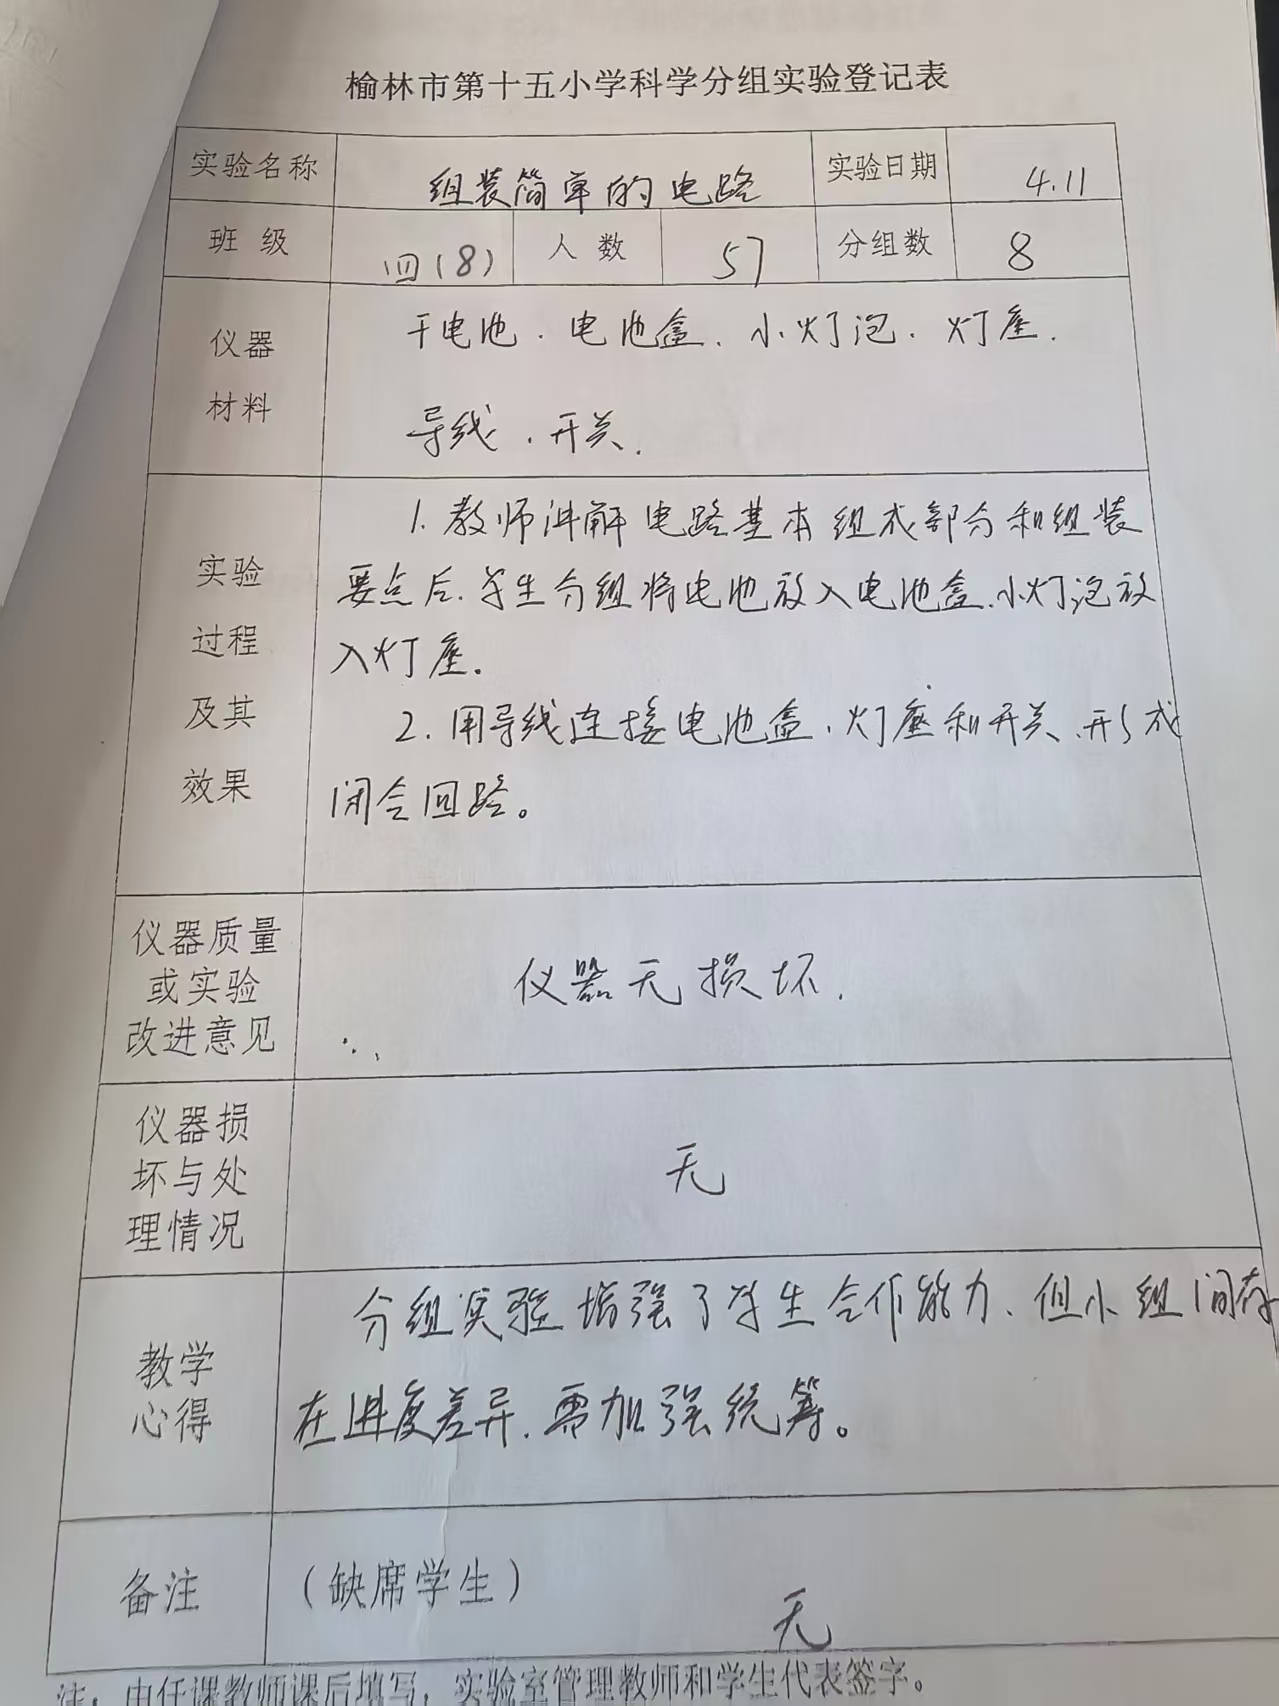 榆林市第十五小学科学分组实验登记表
实验名称 组装简单的电路 实验日期 4.11
班级 四(8) 人数 57 分组数 8
仪器 干电池、电池盒、小灯泡、灯座、
材料 导线、开关.
1.教师讲解电路基本组成部分和组装
实验 要点后、学生分组将电池放入电池盒、小灯泡放
过程 入灯座.
及其 2.用导线连接电池盒、灯座和开关、形成
效果 闭合回路。
仪器质量
或实验 仪器无损坏.
改进意见
仪器损
坏与处 无
理情况
分组实验增强了学生合作能力、但小组间存
教学
心得 在进度差异、需加强统筹。
备注 (缺席学生)
无
注：由任课教师课后填写，实验室管理教师和学生代表签字。